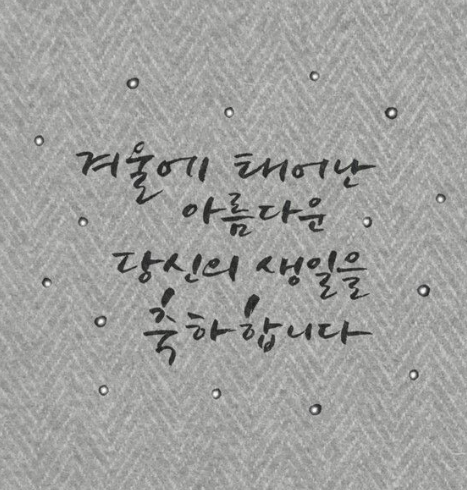 겨울에 태어난
아름다운
당신의 생일을
축하합니다